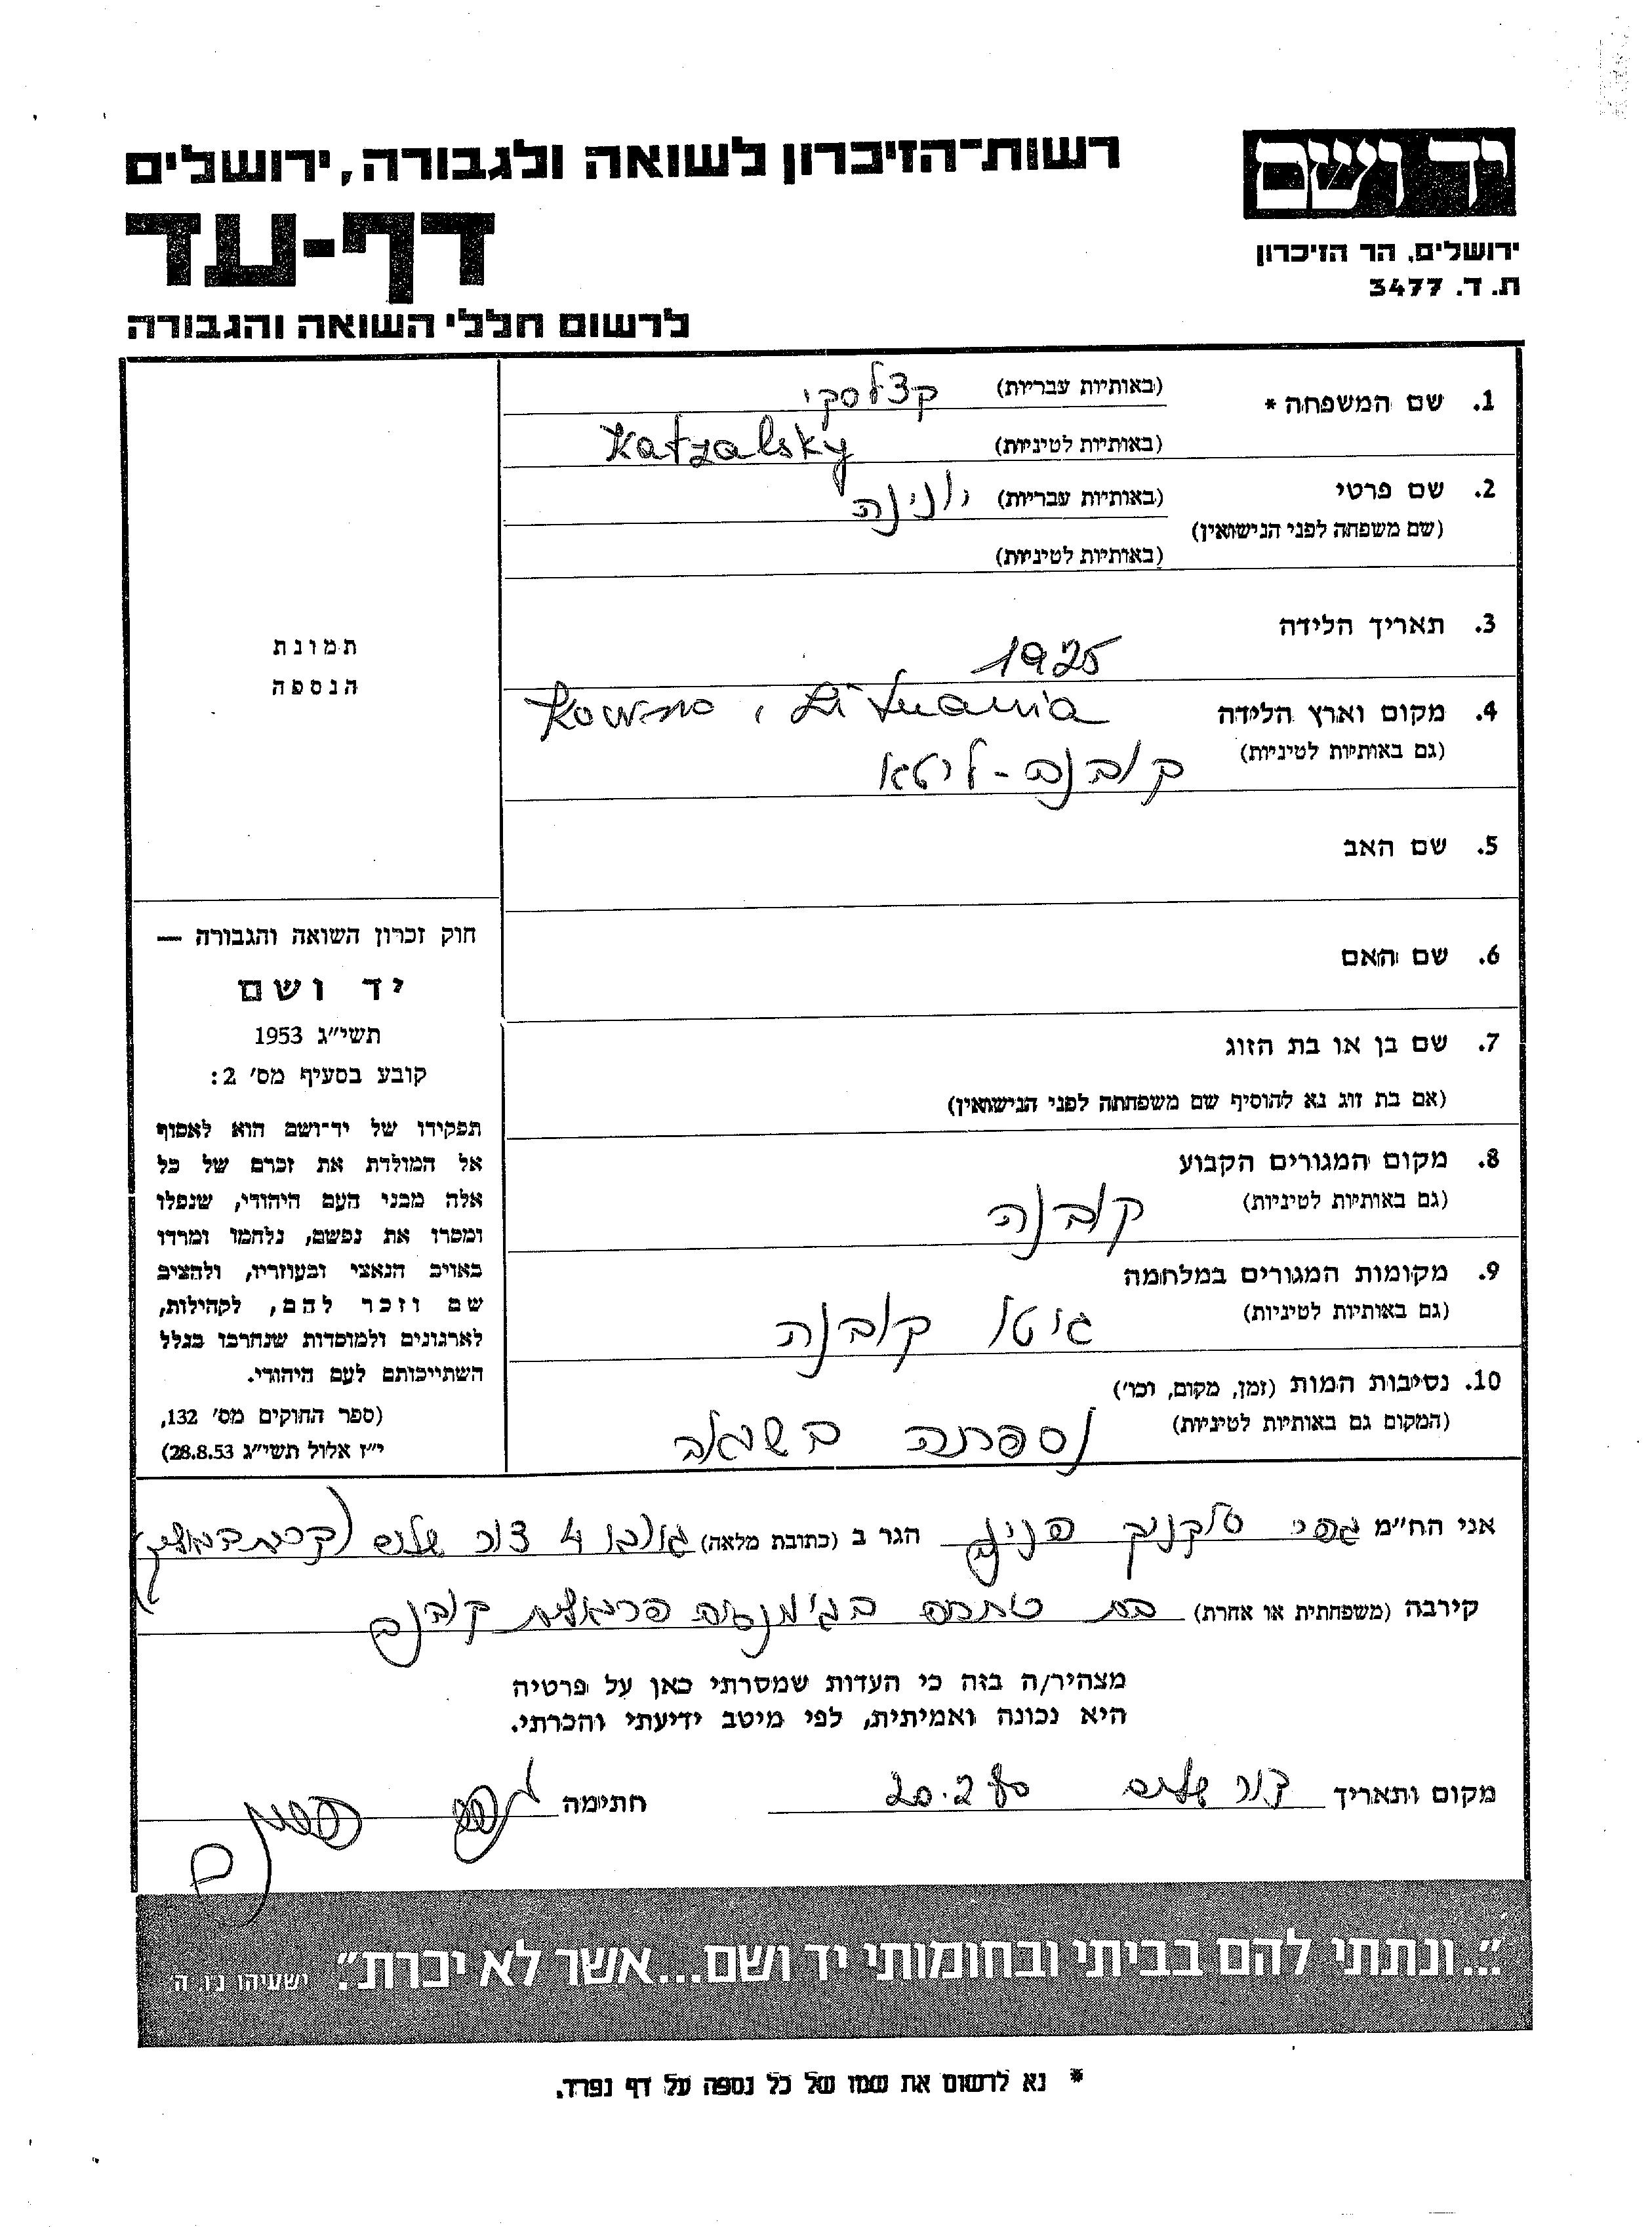 יד ושם
ירושלים, הר הזיכרון
ת. ד. 3477
רשות־הזיכרון לשואה ולגבורה, ירושלים
דף-עד
לרשום חללי השואה והגבורה
1. שם המשפחה * (באותיות עבריות) קצלסקי
(באותיות לטיניות) Katzalsky
2. שם פרטי (באותיות עבריות)
(שם משפחה לפני הנישואין)
(באותיות לטיניות)
3. תאריך הלידה 1925
4. מקום וארץ הלידה Kowno, Lituania
(גם באותיות לטיניות) קובנה - ליטא
5. שם האב
6. שם האם
7. שם בן או בת הזוג
(אם בת זוג נא להוסיף שם משפחתה לפני הנישואין)
8. מקום המגורים הקבוע
(גם באותיות לטיניות) קובנה
9. מקומות המגורים במלחמה
(גם באותיות לטיניות) גיטו קובנה
10. נסיבות המות (זמן, מקום, וכו')
(המקום גם באותיות לטיניות) נספתה בשואה
תמונת
הנספה
חוק זכרון השואה והגבורה —
יד ושם
תשי"ג 1953
קובע בסעיף מס' 2:
תפקידו של יד־ושם הוא לאסוף
אל המולדת את זכרם של כל
אלה מבני העם היהודי, שנפלו
ומסרו את נפשם, נלחמו ומרדו
באויב הנאצי ובעוזריו, ולהציב
שם וזכר להם, לקהילות,
לארגונים ולמוסדות שנחרבו בגלל
השתייכותם לעם היהודי.
(ספר החוקים מס' 132,
י"ז אלול תשי"ג 28.8.53)
אני הח"מ הגר ב (כתובת מלאה) 4 צור שלום
קירבה (משפחתית או אחרת) בת בגימנסיה ריאלית קובנה
מצהיר/ה בזה כי העדות שמסרתי כאן על פרטיה
היא נכונה ואמיתית, לפי מיטב ידיעתי והכרתי.
מקום ותאריך צור שלום 20.2.80 חתימה
"...ונתתי להם בביתי ובחומותי יד ושם...אשר לא יכרת". ישעיהו נ"ו, ה'
* נא לרשום את שמו של כל נספה על דף נפרד.